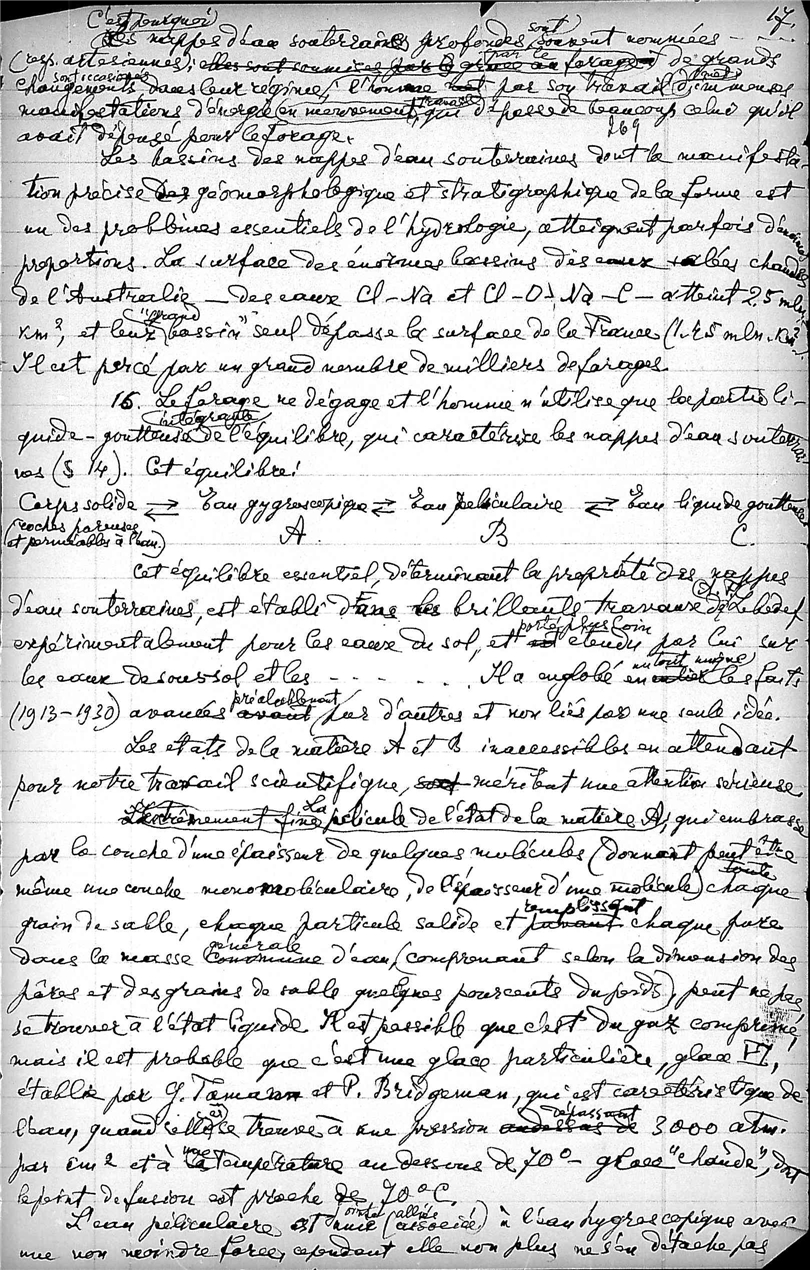 17.
C'est pourquoi
les nappes d'eau souterraines profondes sont souvent nommées - - -
(resp. artésiennes; elles sont soumises par le forage à de grands
changements dans leur régime, l'homme par son travail d'immenses
manifestations d'énergie en mouvement, qui dépasse de beaucoup celui qu'il
avait dépensé pour le forage.
269
Les bassins des nappes d'eau souterraines dont la manifesta-
tion précise géomorphologique et stratigraphique de la forme est
un des problèmes essentiels de l'hydrologie, atteignent parfois d'énormes
proportions. La surface des énormes bassins des eaux salées chaudes
de l'Australie — des eaux Cl-Na et Cl-O-Na-C — atteint 2.5 mln.
km², et leur "grand bassin" seul dépasse la surface de la France (1.25 mln. km².
Il est percé par un grand nombre de milliers de forages.
16. Le forage ne dégage et l'homme n'utilise que la partie li-
intégrante
quide-goutteuse de l'équilibre, qui caractérise les nappes d'eau souterrai-
nes (§ 14). Cet équilibre:
Corps solide ⇄ Eau gygroscopique ⇄ Eau peliculaire ⇄ Eau liquide goutteuse
(roches poreuses
et perméables à l'eau.) A. B C.
Cet équilibre essentiel, déterminant la propriété des nappes
d'eau souterraines, est établi dans les brillants travaux de Lebedef
expérimentalement pour les eaux du sol, et porté plus loin étendu par lui sur
les eaux de sous-sol et les - - - - - . Il a englobé en un tout unique les faits
(1913-1930) avancés préalablement par d'autres et non liés par une seule idée.
Les états de la matière A et B inaccessibles en attendant
pour notre travail scientifique, méritent une attention sérieuse.
L'extrêmement fine La pelicule de l'état de la matière A, qui embrasse
par la couche d'une épaisseur de quelques molécules (donnant peut être
même une couche monomoléculaire, de l'épaisseur d'une molécule) toute chaque
grain de sable, chaque particule solide et remplissant chaque pore
dans la masse générale d'eau, (comprenant selon la dimension des
pores et des grains de sable quelques pourcents du poids) peut ne pas
se trouver à l'état liquide. Il est possible que c'est du gaz comprimé,
mais il est probable que c'est une glace particulière, glace VI,
établie par G. Tamann et P. Bridgeman, qui est caractéristique de
l'eau, quand celle-ci se trouve à une pression dépassant 3000 atm.
par cm² et à une température au dessous de 70° - glace "chaude", dont
le point de fusion est proche de 70°C.
L'eau péliculaire est unie (alliée) (associée) à l'eau hygroscopique avec
une non moindre force, cependant elle non plus ne s'en détache pas